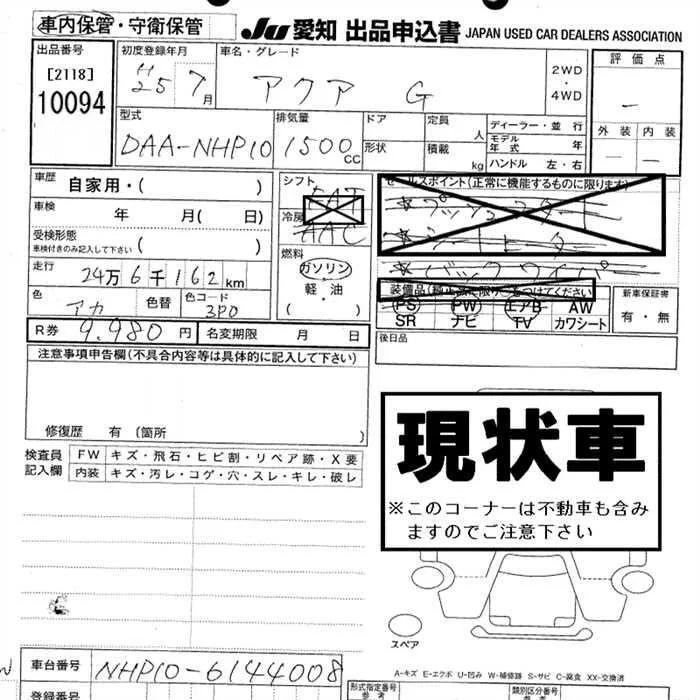 車内保管・守衛保管
JU 愛知 出品申込書 JAPAN USED CAR DEALERS ASSOCIATION
出品番号
[2118]
10094
初度登録年月
H25 7月
車名・グレード
アクア G
2WD
・
4WD
評価点
―
外装 内装
― ―
型式
DAA-NHP10
排気量
1500cc
ドア
形状
定員 人
積載 kg
ディーラー・並行
モデル年式 年
ハンドル 左・右
車歴 自家用・( )
車検 年 月( 日)
受検形態
車検付きのみ記入して下さい ( )
走行 24万6千162km
色 アカ 色替 色コード 3P0
シフト
FAT
冷房
AAC
燃料
ガソリン
・
軽・油
( )
セールスポイント(正常に機能するものに限ります)
*プッシュスタート
*シートヒーター
*バックワイパー
PS PW エアB AW
SR ナビ TV カワシート
新車保証書
有・無
R券 9.980円 名変期限 月 日
後日品
注意事項申告欄(不具合内容等は具体的に記入して下さい)
修復歴 有 〔箇所 〕
検査員記入欄
FW キズ・飛石・ヒビ割・リペア跡・X要
内装 キズ・汚レ・コゲ・穴・スレ・キレ・破レ
現状車
※このコーナーは不動車も含み
ますのでご注意下さい
スペア
A-キズ E-エクボ U-凹み W-補修跡 S-サビ C-腐食 XX-交換済
車台番号 NHP10-6144008
登録番号
形式指定番号
参考
類別区分番号
参考